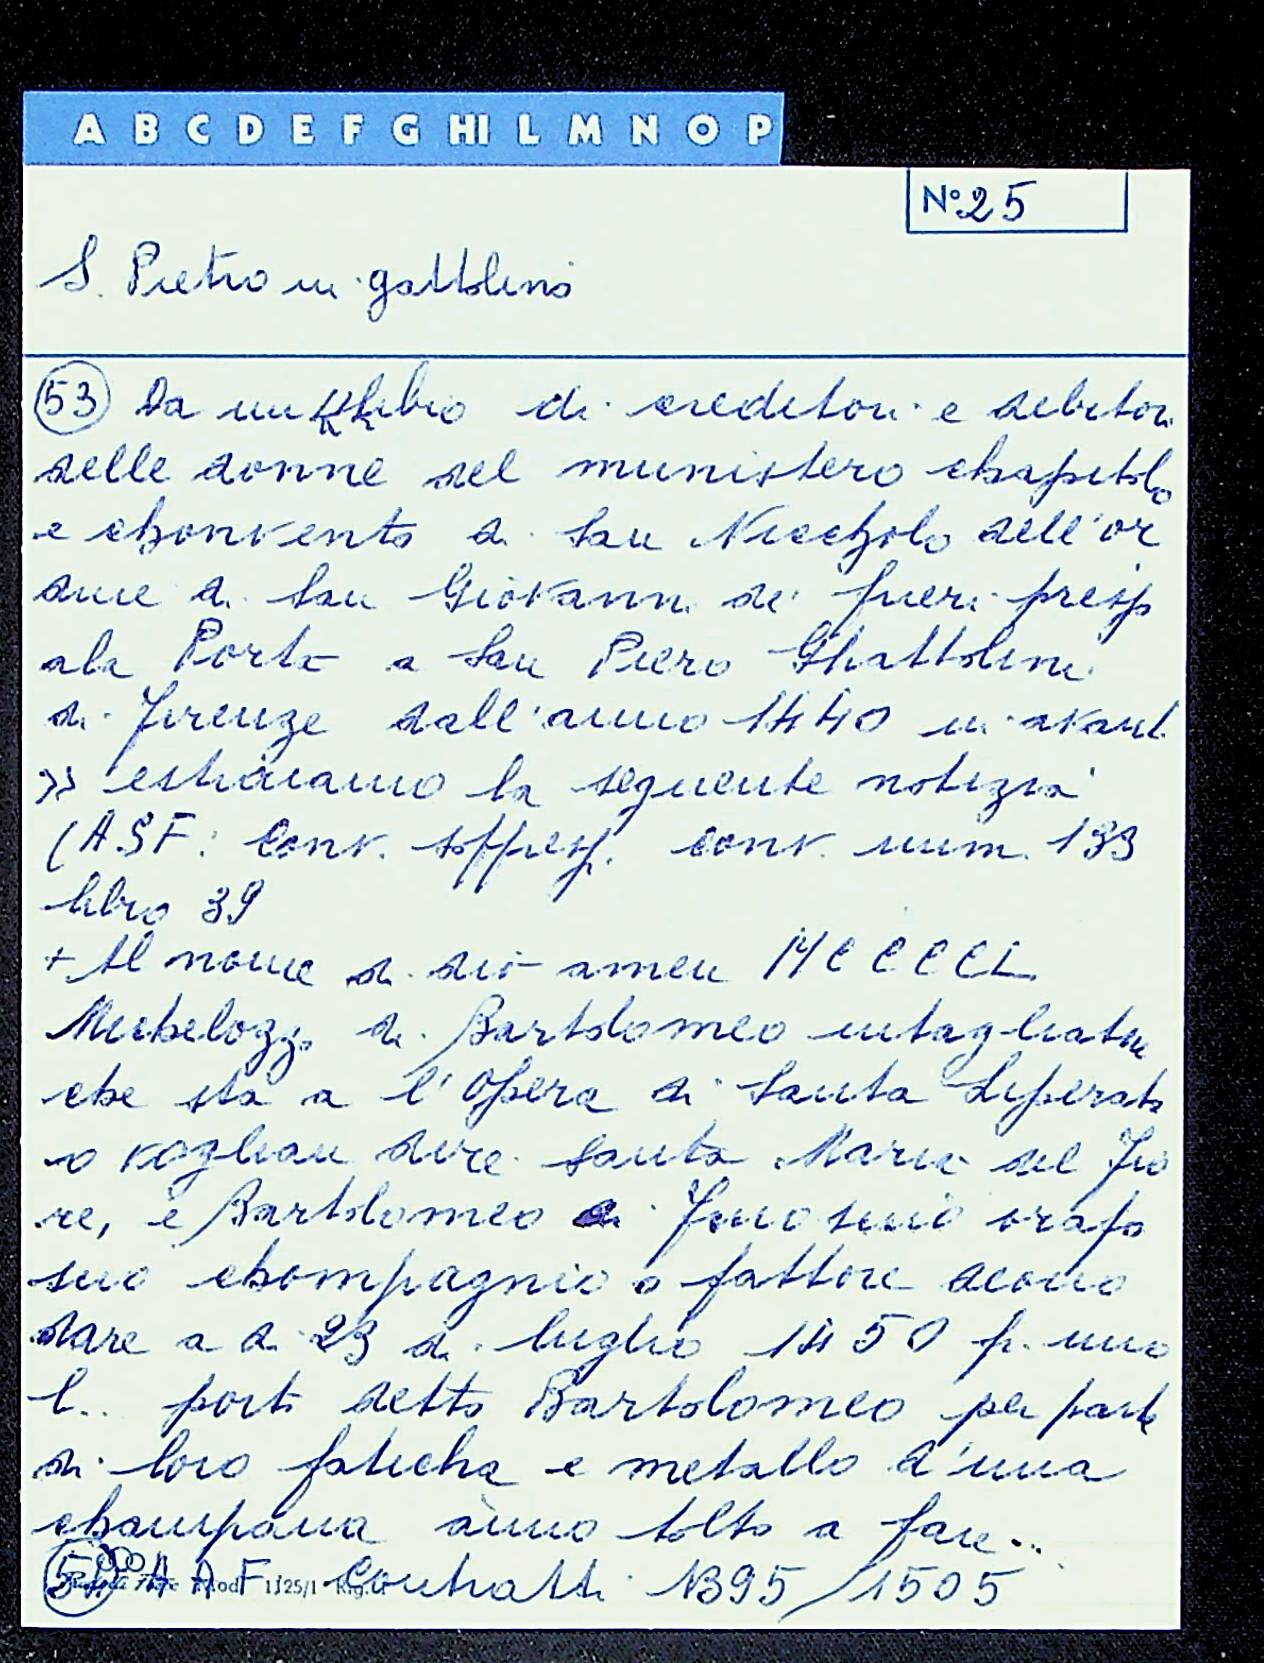 A B C D E F G HI L M N O P
N° 25
S. Pietro in gattolino
53 Da un libro di creditori e debitori
delle donne del munistero chapitolo
e chonvento di San Niccholo dell'or
dine di San Giovanni di fueri presso
ala Porta a San Piero Ghattolini
di Firenze dall'anno 1440 in avanti
» estraiamo la seguente notizia
(ASF: Conv. soppress. conv. num. 133
libro 39
+ Al nome di dio amen MCCCCL
Michelozzo di Bartolomeo intagliatore
che sta a l'Opera di Santa Liperata
o vogliam dire Santa Maria del Fio
re, e Bartolomeo di orafo
suo chompagnio o fattore deono
dare a dì 23 di luglio 1450 f. uno
l.. portò detto Bartolomeo per parte
di loro faticha e metallo d'una
champana ànno tolto a fare...
A A F Contratti 1395/1505
Mod 1125/1 Rig.